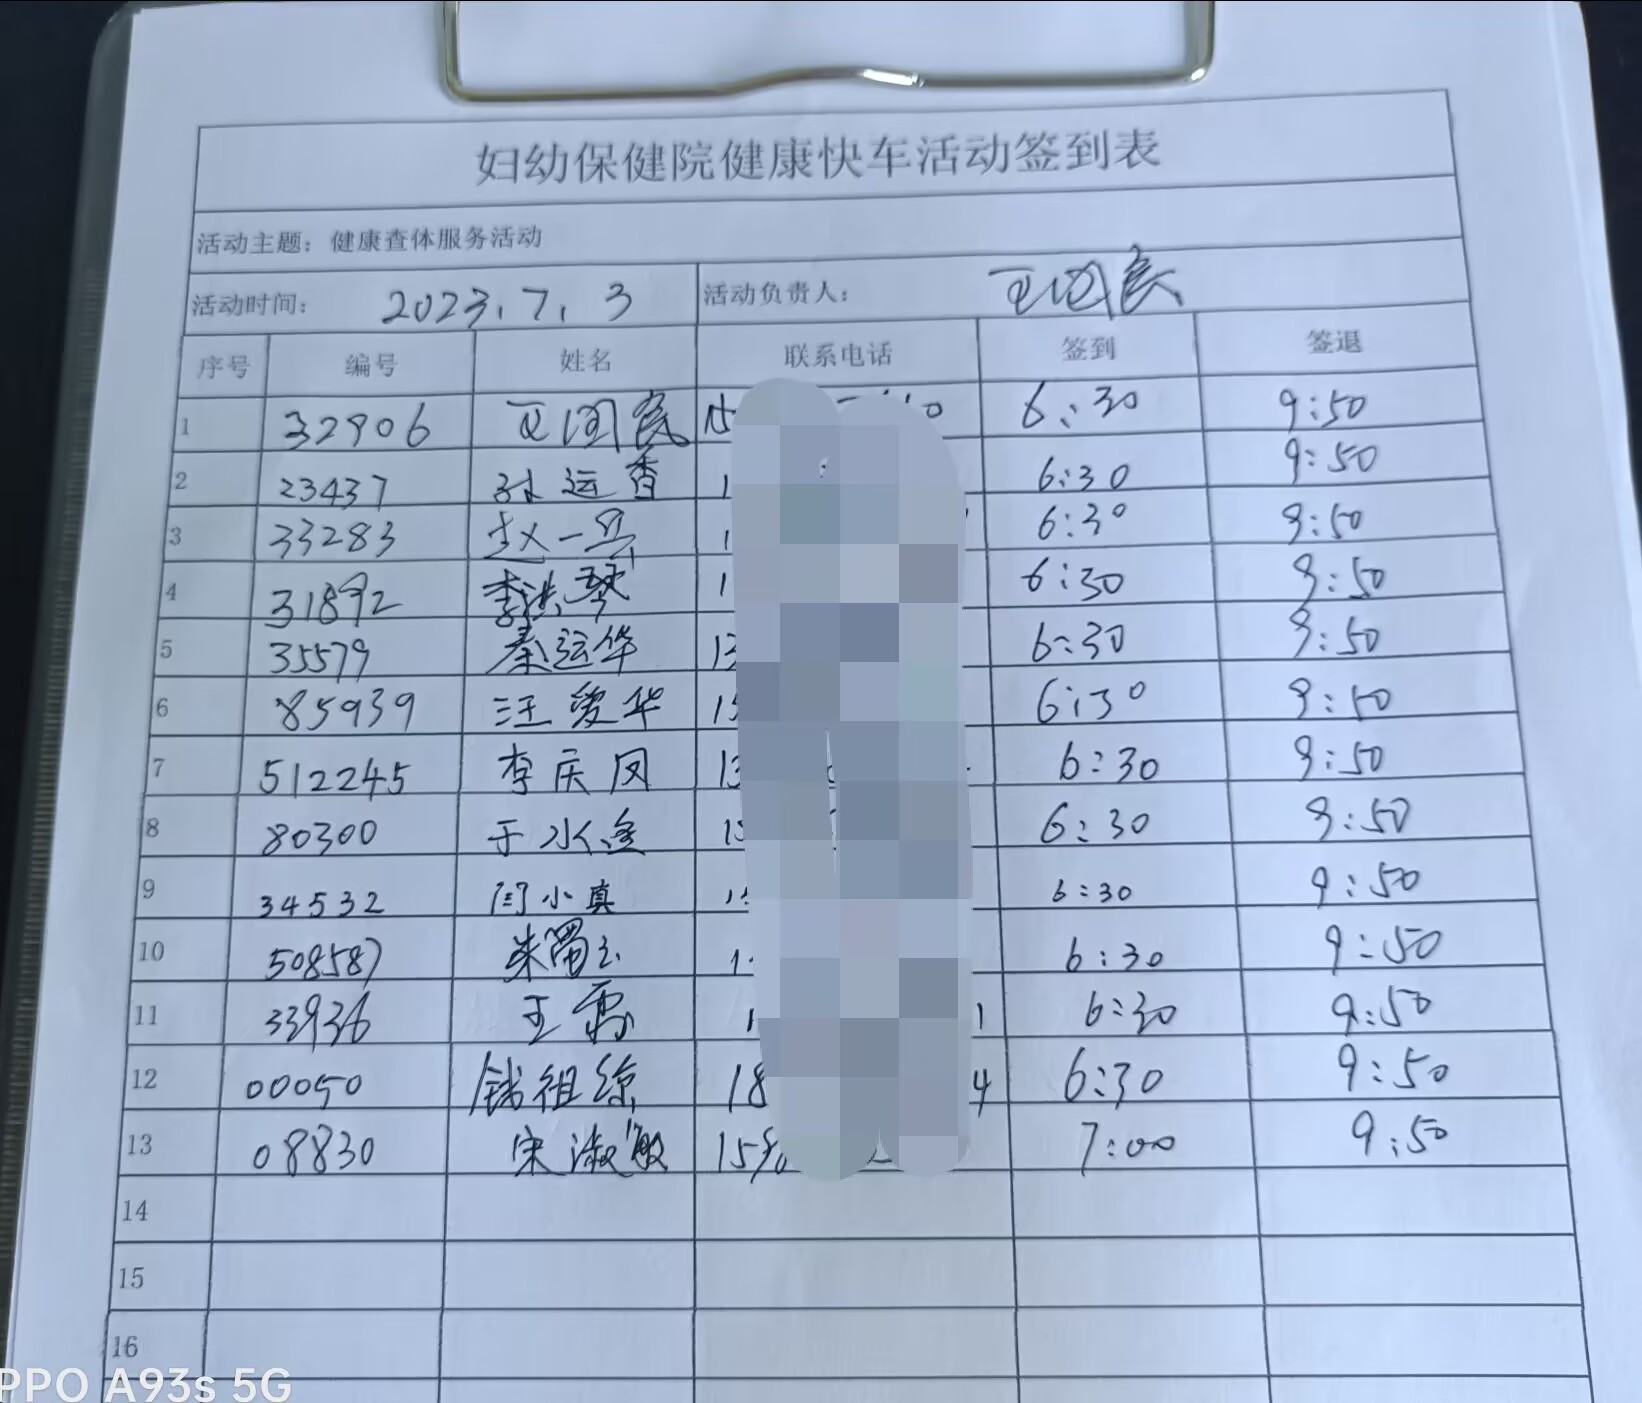 妇幼保健院健康快车活动签到表
活动主题：健康查体服务活动
活动时间： 2023.7.3 活动负责人： 王国民
序号 编号 姓名 联系电话 签到 签退
1 32906 王国民 15 6:30 9:50
2 23437 孙运香 1 6:30 9:50
3 33283 赵一 1 6:30 9:50
4 31892 李洪琴 1 6:30 9:50
5 35579 秦运华 13 6:30 9:50
6 85939 汪爱华 15 6:30 9:50
7 512245 李庆凤 13 6:30 9:50
8 80300 于水 15 6:30 9:50
9 34532 闫小真 6:30 9:50
10 508587 朱 6:30 9:50
11 33936 王霞 1 1 6:30 9:50
12 00050 钱祖综 18 4 6:30 9:50
13 08830 宋淑敏 159 7:00 9:50
14
15
16
PPO A93s 5G